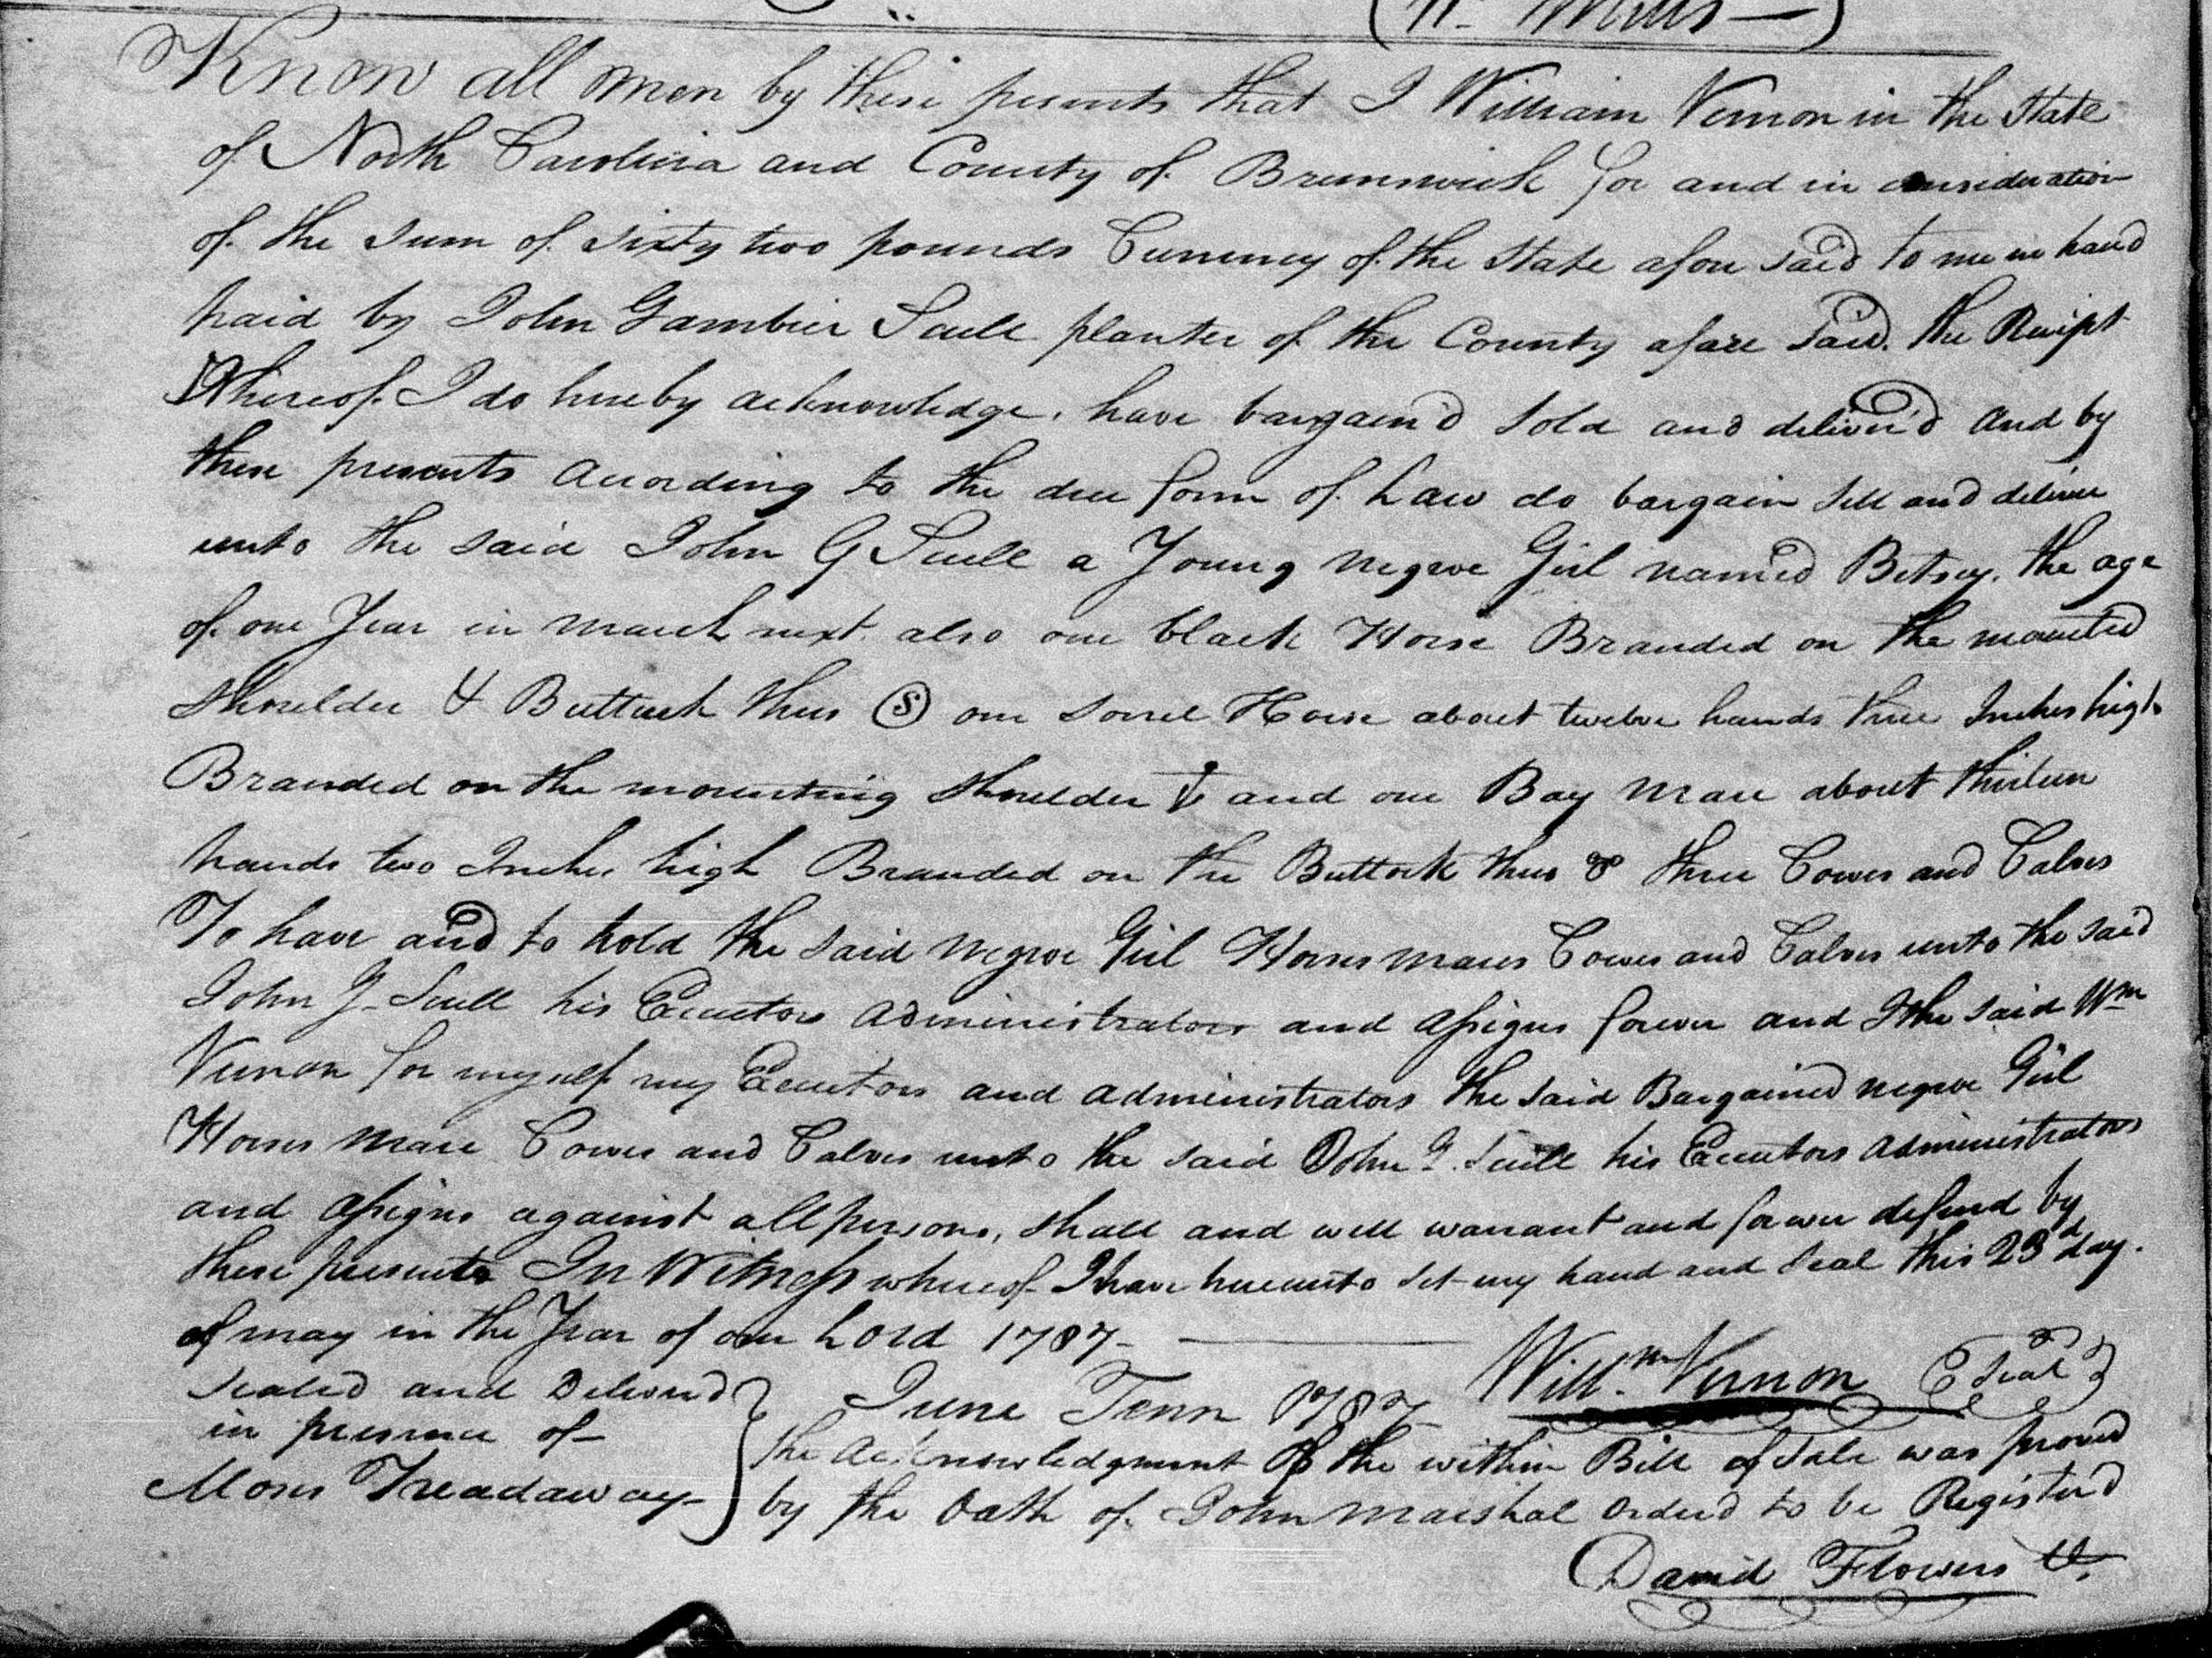 Wm Mills
Know all men by these presents that I William Vernon in the State
of North Carolina and County of Brunswick for and in consideration
of the Sum of Sixty two pounds Currency of the State afore said to me in hand
paid by John Gambier Scull planter of the County afore said. the Receipt
Whereof I do hereby acknowledge, have bargain'd Sold and deliver'd and by
these presents according to the due form of Law do bargain sell and deliver
unto the said John G Scull a Young negroe Girl named Betsey. the age
of one Year in march next. also one black Horse Branded on the mounted
Shoulder & Buttock thus S one Sorrel Horse about twelve hands three Inches high
Branded on the mounting Shoulder and one Bay mare about thirteen
hands two Inches high Branded on the Buttock thus 8 three Cowes and Calves
To have and to hold the said negroe Girl Horses mares Cowes and Calves unto the said
John G. Scull his Executors administrators and assigns forever and I the said Wm
Vernon for myself my Executors and administrators the said Bargained negroe Girl
Horses mare Cowes and Calves unto the said John G. Scull his Executors administrators
and assigns against all persons, shall and will warrant and forever defend by
these presents In Witness whereof I have hereunto set my hand and Seal this 23d day.
of may in the Year of our Lord 1787
Willm Vernon Seal
Sealed and Deliverd
in presence of
Moses Treadaway
June Term 1787
the acknowledgment of the within Bill of Sale was proved
by the Oath of John Marshal Orderd to be Registerd
David Flowers